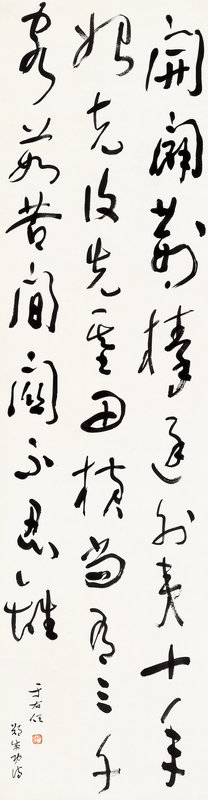 開闢荊榛逐荷夷十年
始克復先基田橫尚有三千
客茹苦間關不忍離
鄭成功詩
于右任